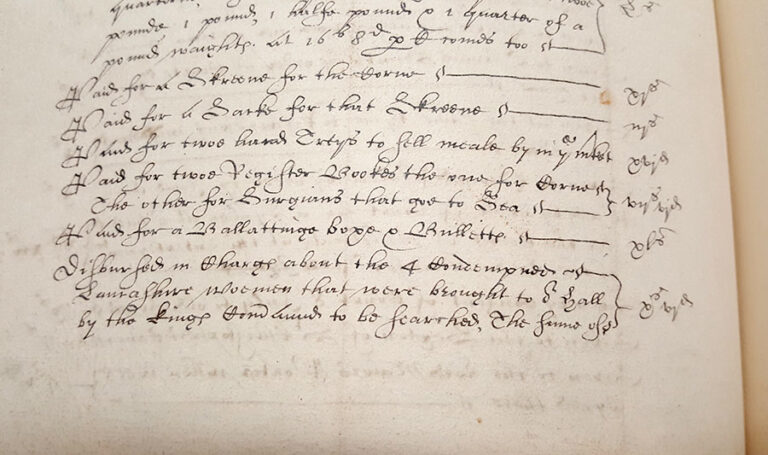 quarter
pounde 1 pound, 1 halfe pound & 1 quarter of a
pound waight. At 16s 8d p C comes too
Paid for a Skreene for the Corne xjs
Paid for a Sacke for that Skreene iijs
Paid for twoe hand Treys to sell meale by in ye mket xvjd
Paid for twoe Register Bookes the one for Corne
The other for Surgians that goe to Sea vijs vjd
Paid for a Ballattinge boxe & Bulletts xls
Disbursed in Charge about the 4 Condempned
Lancashire woemen that were brought to or Hall
by the Kings Comaund to be searched, The sume of xs vjd